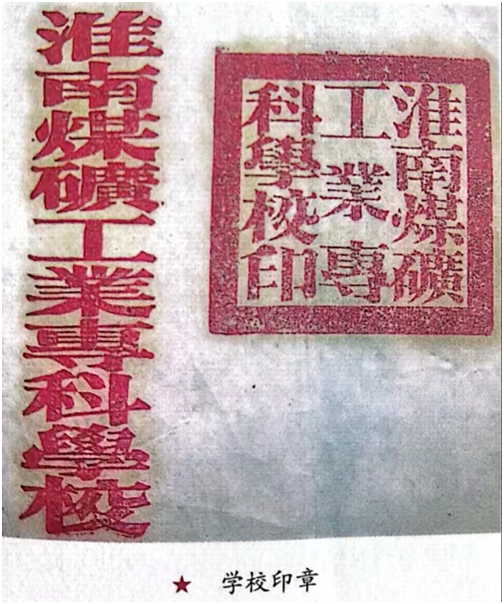 淮南煤礦工業專科學校
淮南煤礦
工業專
科學校印
★ 学校印章